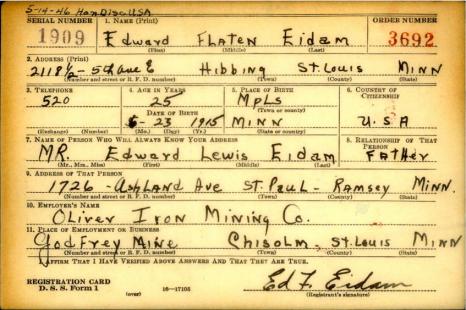 5-14-46 Hon Disc USA
SERIAL NUMBER 1. NAME (Print) ORDER NUMBER
1909 Edward FLATEN Eidam 3692
(First) (Middle) (Last)
2. ADDRESS (Print)
2118½ - 5th Ave E Hibbing St. Louis MINN
(Number and street or R. F. D. number) (Town) (County) (State)
3. TELEPHONE 4. AGE IN YEARS 5. PLACE OF BIRTH 6. COUNTRY OF CITIZENSHIP
520 25 MpLs
DATE OF BIRTH (Town or county)
6-23 1915 MINN U.S.A
(Exchange) (Number) (Mo.) (Day) (Yr.) (State or country)
7. NAME OF PERSON WHO WILL ALWAYS KNOW YOUR ADDRESS 8. RELATIONSHIP OF THAT PERSON
MR. Edward Lewis Eidam FATHER
(Mr., Mrs., Miss) (First) (Middle) (Last)
9. ADDRESS OF THAT PERSON
1726 - AshLand Ave ST. PauL - Ramsey Minn.
(Number and street or R. F. D. number) (Town) (County) (State)
10. EMPLOYER'S NAME
OLiver Iron Mining Co.
11. PLACE OF EMPLOYMENT OR BUSINESS
Godfrey Mine Chisolm, St. Louis Minn
(Number and street or R. F. D. number) (Town) (County) (State)
I AFFIRM THAT I HAVE VERIFIED ABOVE ANSWERS AND THAT THEY ARE TRUE.
REGISTRATION CARD
D. S. S. Form 1 (over) 16—17105
Ed F. Eidam
(Registrant's signature)